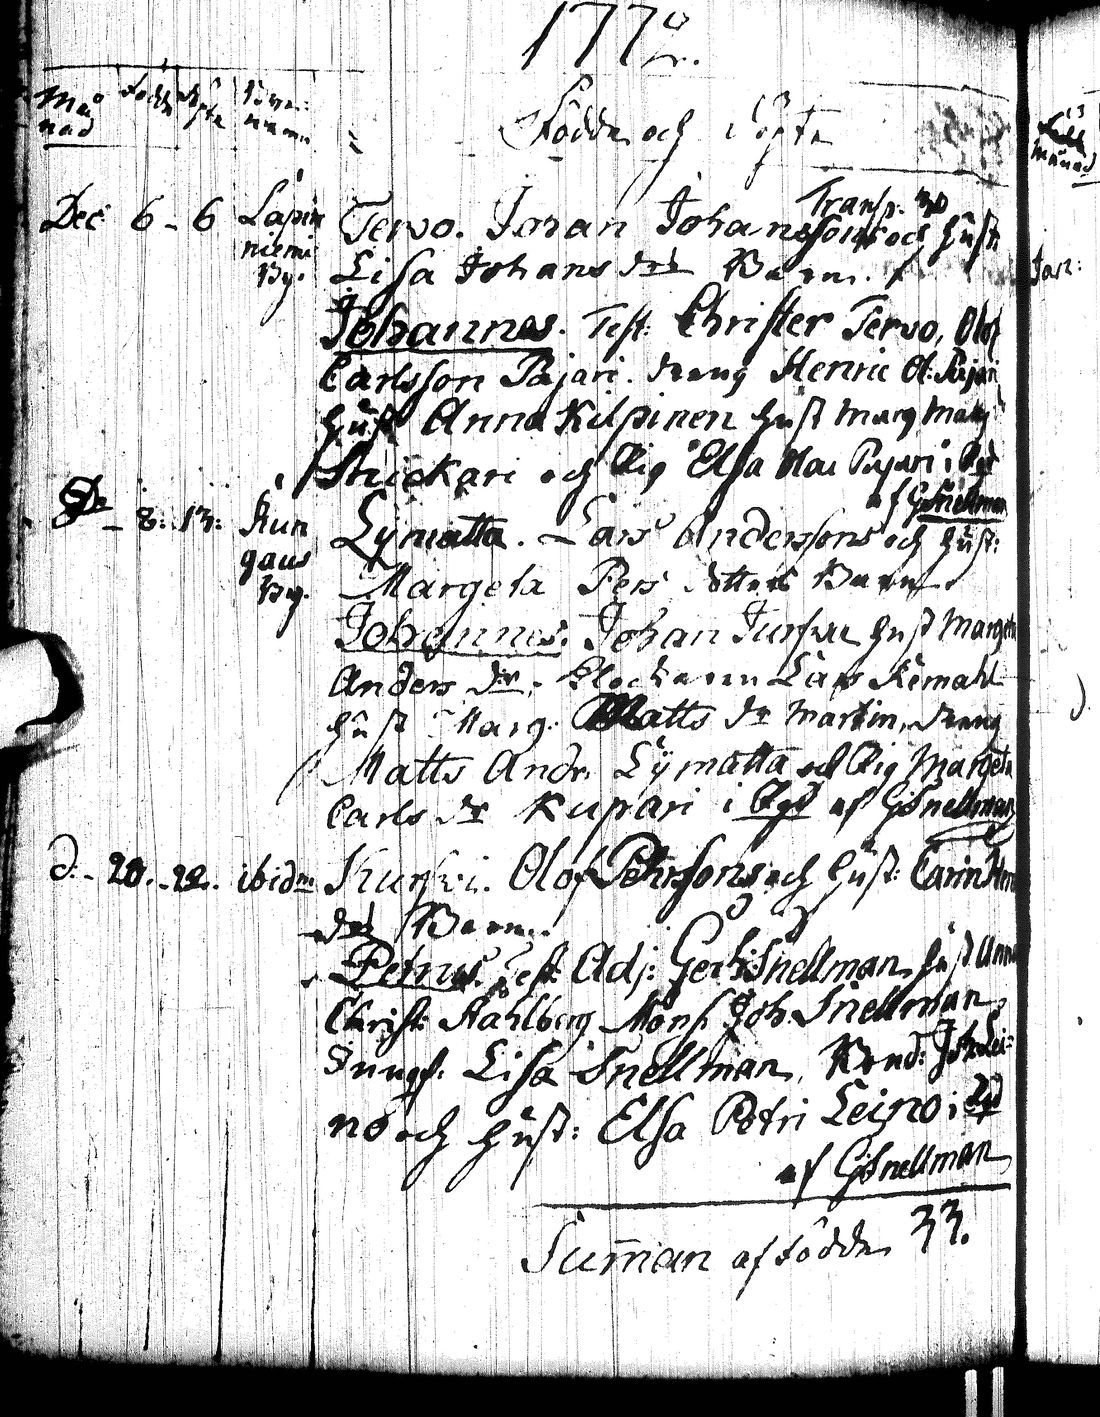 1772.
Månad Födde döpte
Födde och Döpte
Transp. 30
Dec: 6 - 6 Lapin Tervo. Joran Johanssons och hust
niemi Lisa Johans dotr Barn.
By. Johannes. Test: Christer Tervo, Olof
Carlsson Pajari. dräng Henric Ol: Pajari
hust Anna Kilpinen hust Marg Mats
Strickari och Pig Elsa Olai Pajari i Byd
af GSnellman
D - 8: 13: Kun Lymatta. Lars Anderssons och hust:
gaus Margeta Pers dotters Barn.
By. Johannes. Johan Kurkvi hust Margeta
Anders dr. Klockaren Lars Kemahl
hust Marg. Matts dr Martin, dräng
Matts Andr. Lymatta och Pig Margeta
Carls dr Kupari i Byd af GSnellman
d. - 20. - 22. ibidm Kurkvi. Olof Pehrssons och hust: Carin
dotr Barn.
Petrus. Test: Adj: Gerh: Snellman, hust Anna
Christ: Kahlberg Mons: Joh. Snellman,
Jungf. Lisa Snellman, Bond: Joh. Lei-
no och hust: Elsa Petri Leino i Byd
af GSnellman
Summan af födde 33.
Jan: